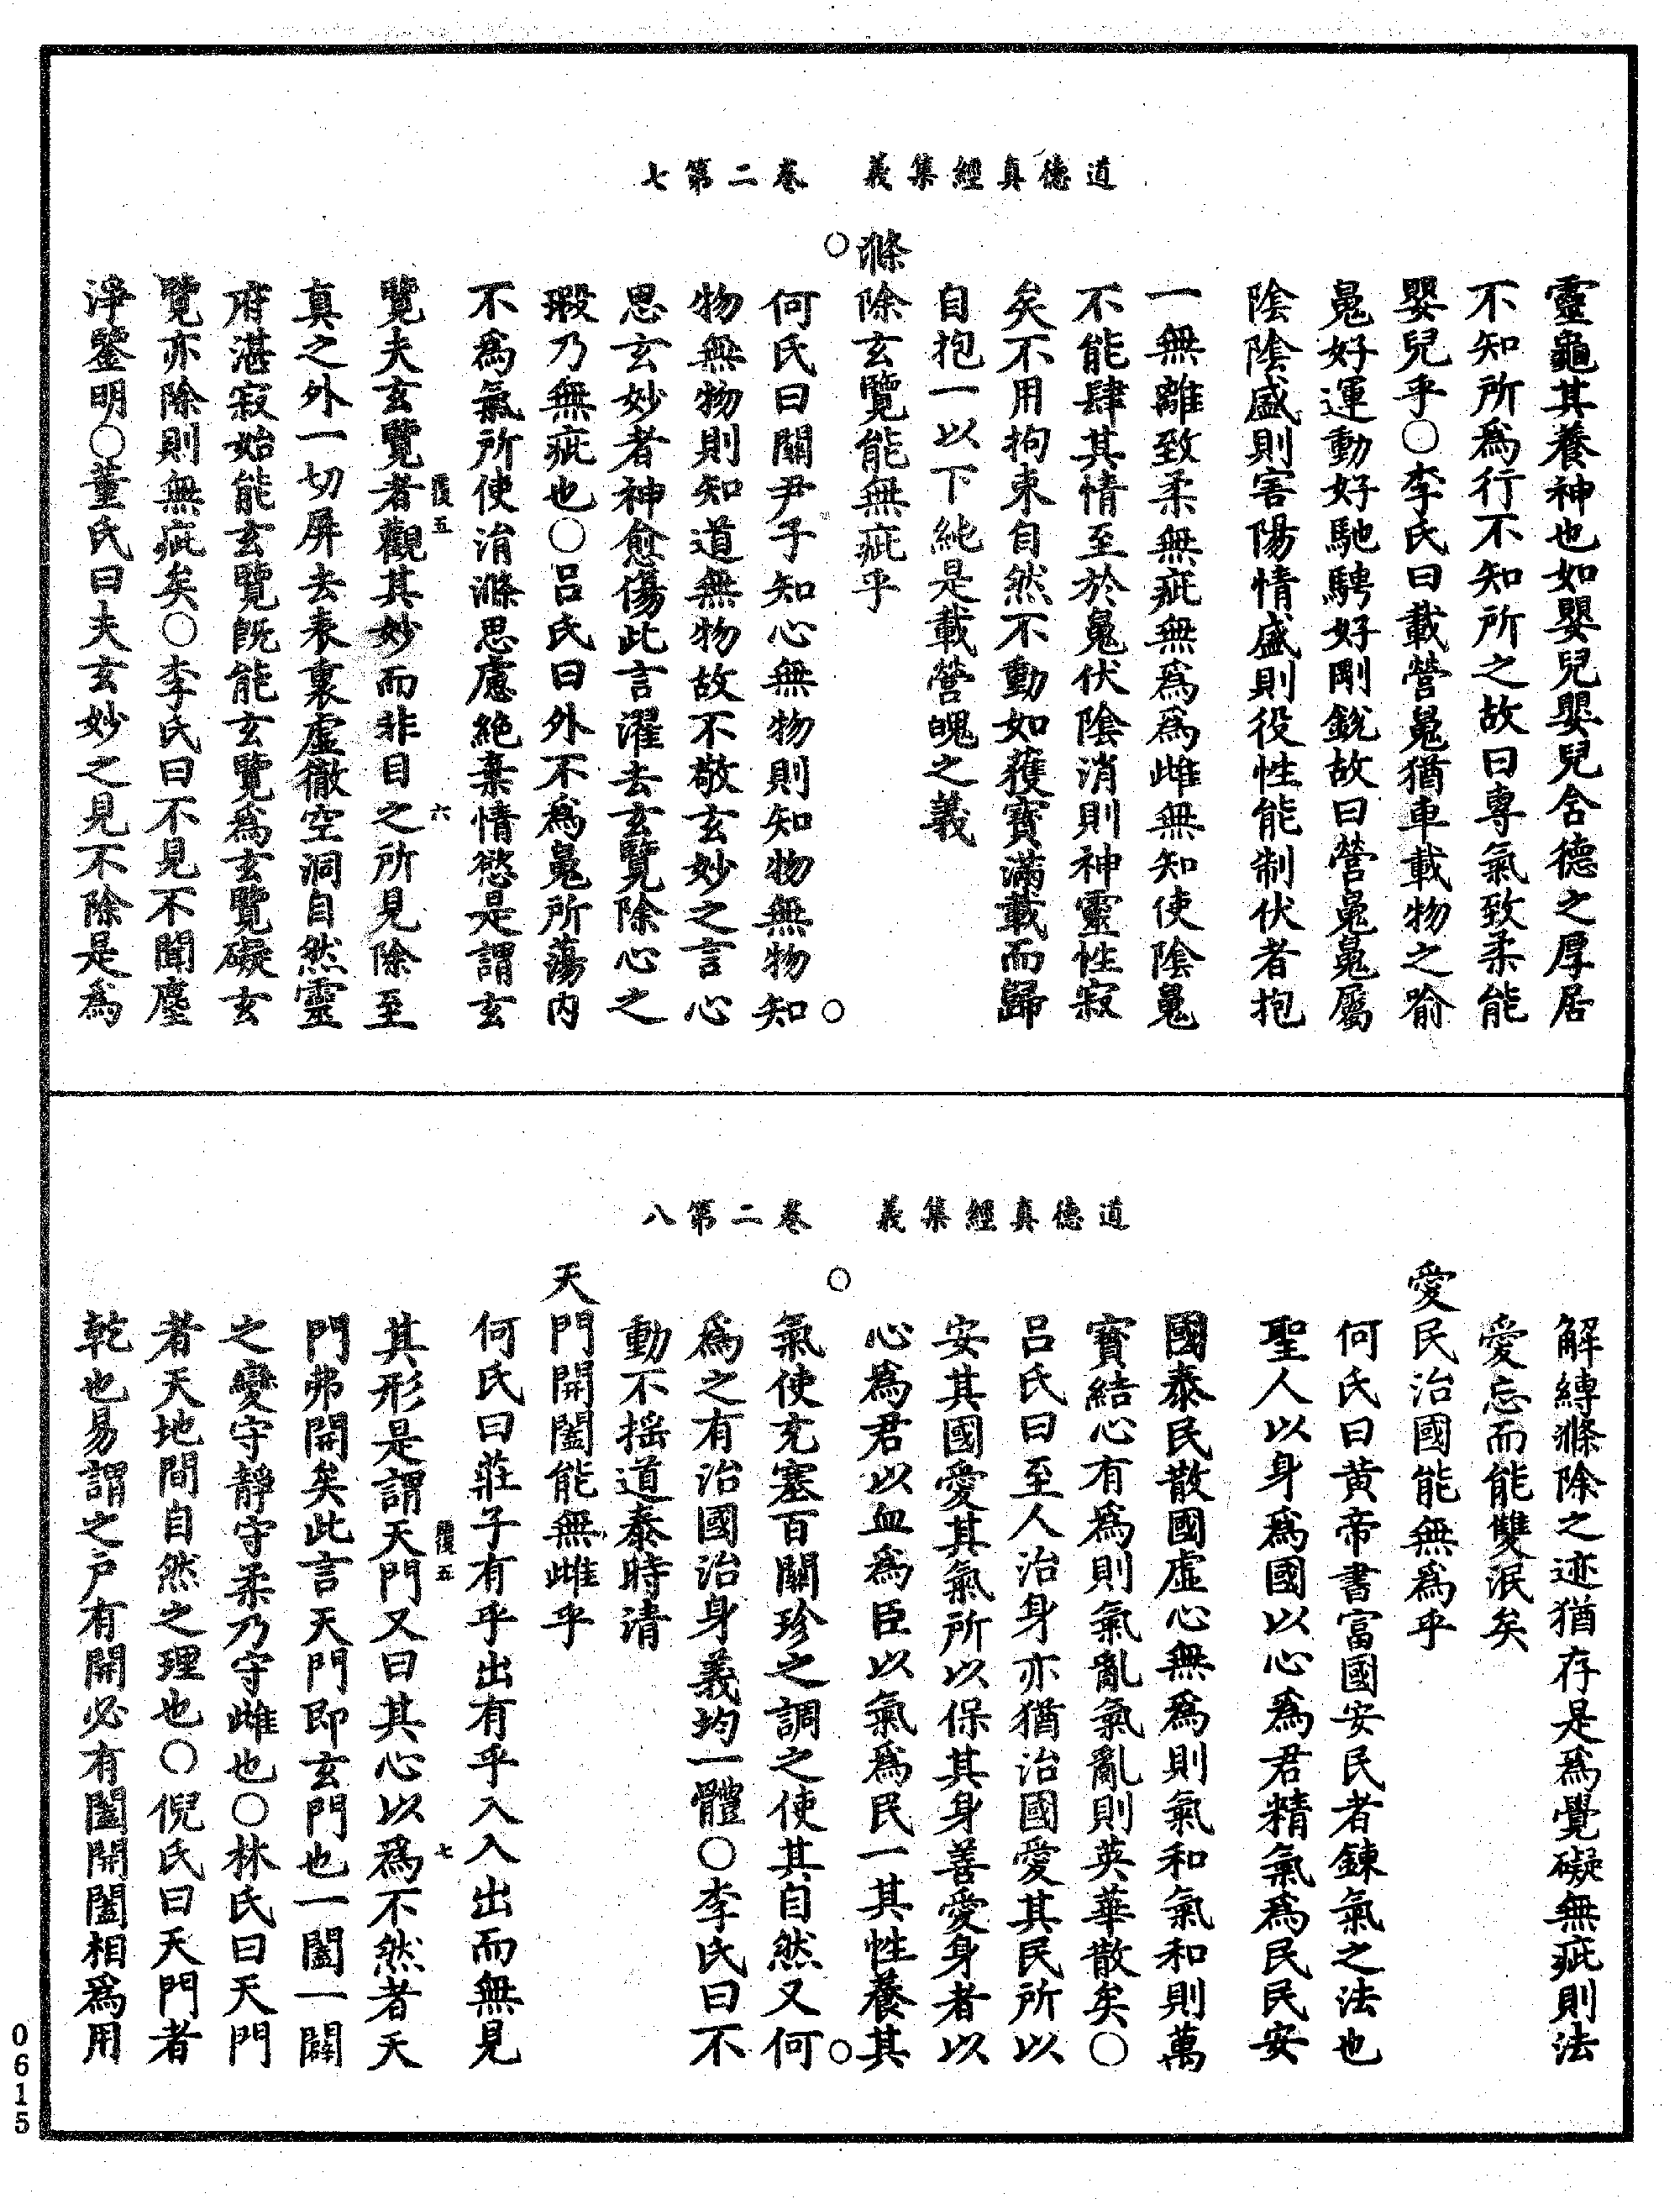 道德真經集義　卷二第七
靈龜其養神也如嬰兒嬰兒含德之厚居
不知所爲行不知所之故曰專氣致柔能
嬰兒乎○李氏曰載營䰟猶車載物之喻
䰟好運動好馳騁好剛銳故曰營䰟䰟屬
陰陰盛則害陽情盛則役性能制伏者抱
一無離致柔無疵無爲爲雌無知使陰䰟
不能肆其情至於䰟伏陰消則神靈性寂
矣不用拘束自然不動如獲寶滿載而歸
自抱一以下純是載營魄之義
滌除玄覽能無疵乎
何氏曰關尹子知心無物則知物無物知
物無物則知道無物故不敬玄妙之言心
思玄妙者神愈傷此言濯去玄覽除心之
瑕乃無疵也○呂氏曰外不爲䰟所蕩内
不爲氣所使消滌思慮絶棄情慾是謂玄
覽夫玄覽者觀其妙而非目之所見除至
復五　六
真之外一切屏去表裏虛徹空洞自然靈
府湛寂始能玄覽既能玄覽爲玄覽礙玄
覽亦除則無疵矣○李氏曰不見不聞塵
淨鑒明○董氏曰夫玄妙之見不除是爲
道德真經集義　卷二第八
解縳滌除之迹猶存是爲覺礙無疵則法
愛忘而能雙泯矣
愛民治國能無爲乎
何氏曰黄帝書富國安民者鍊氣之法也
聖人以身爲國以心爲君精氣爲民民安
國泰民散國虛心無爲則氣和氣和則萬
寶結心有爲則氣亂氣亂則英華散矣○
呂氏曰至人治身亦猶治國愛其民所以
安其國愛其氣所以保其身善愛身者以
心爲君以血爲臣以氣爲民一其性養其
氣使充塞百關珍之調之使其自然又何
爲之有治國治身義均一體○李氏曰不
動不摇道泰時清
天門開闔能無雌乎
何氏曰莊子有乎出有乎入入出而無見
其形是謂天門又曰其心以爲不然者天
復五　七
門弗開矣此言天門即玄門也一闔一闢
之變守靜守柔乃守雌也○林氏曰天門
者天地間自然之理也○倪氏曰天門者
乾也易謂之戶有開必有闔開闔相爲用
0615